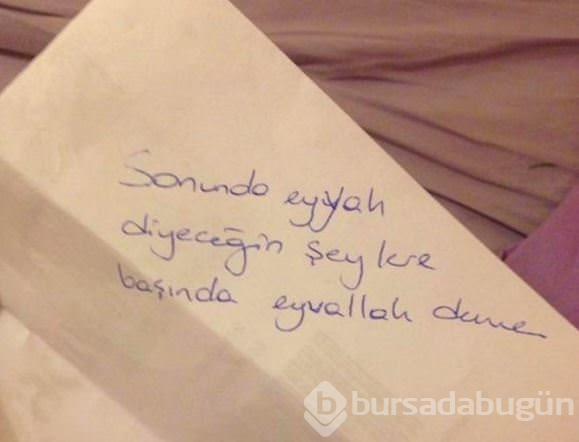 Sonunda eyvah
diyeceğin şeylere
başında eyvallah deme
bursadabugün